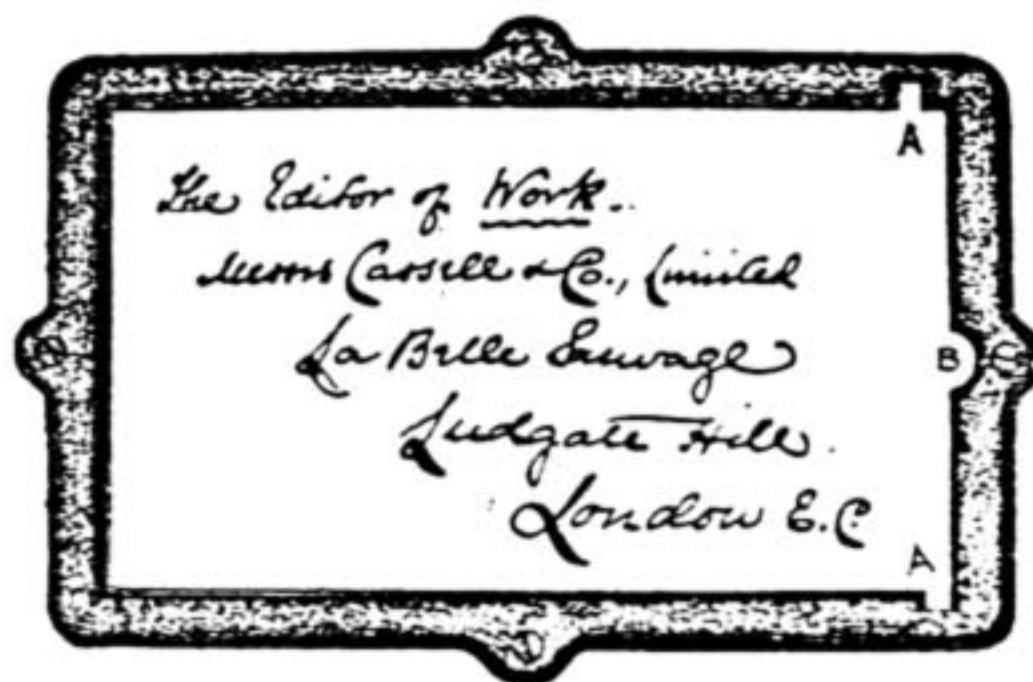 A
The Editor of Work.
Messrs Cassell & Co., Limited
La Belle Sauvage
B
Ludgate Hill.
London E.C.
A